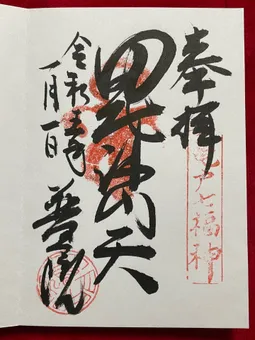 奉拝
亀戸七福神
毘沙門天
令和年
一月一日
普門院